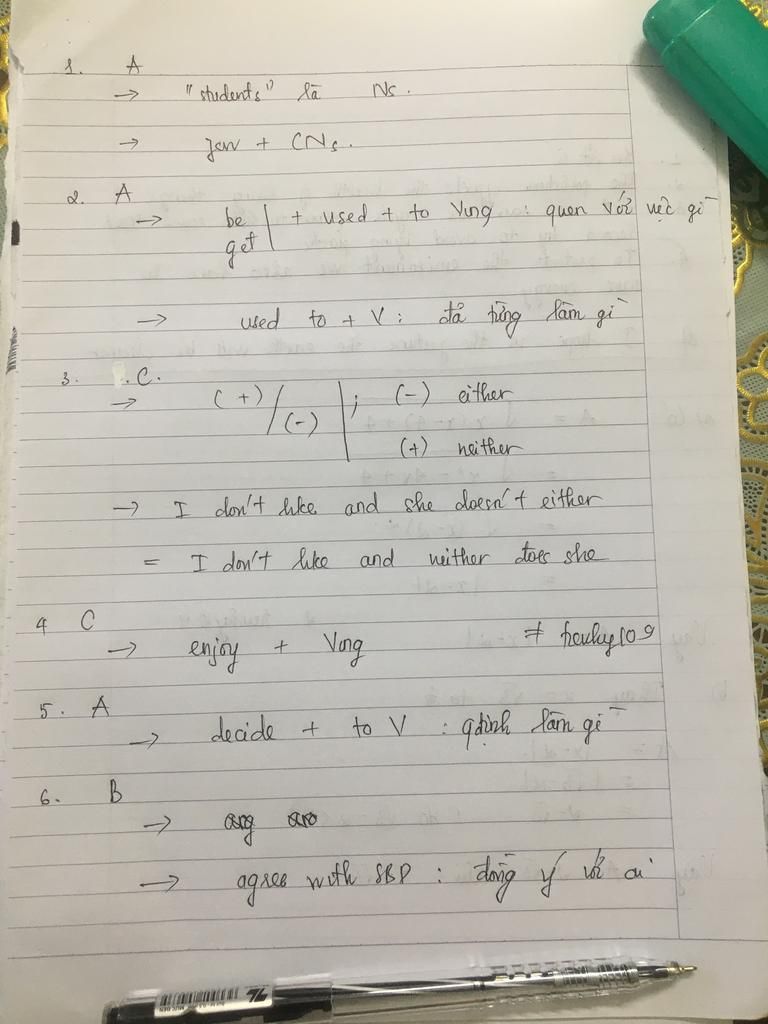 1. A
→ "students" là Ns.
→ few + CNs.
2. A
→ be / get | + used + to Ving : quen với việc gì
→ used to + V : đã từng làm gì
3. C.
→ (+) / (-) | ; (-) either
(+) neither
→ I don't like and she doesn't either
= I don't like and neither does she
4 C
→ enjoy + Ving
5. A
→ decide + to V : qđịnh làm gì
6. B
→
→ agree with SBD : đồng ý với ai